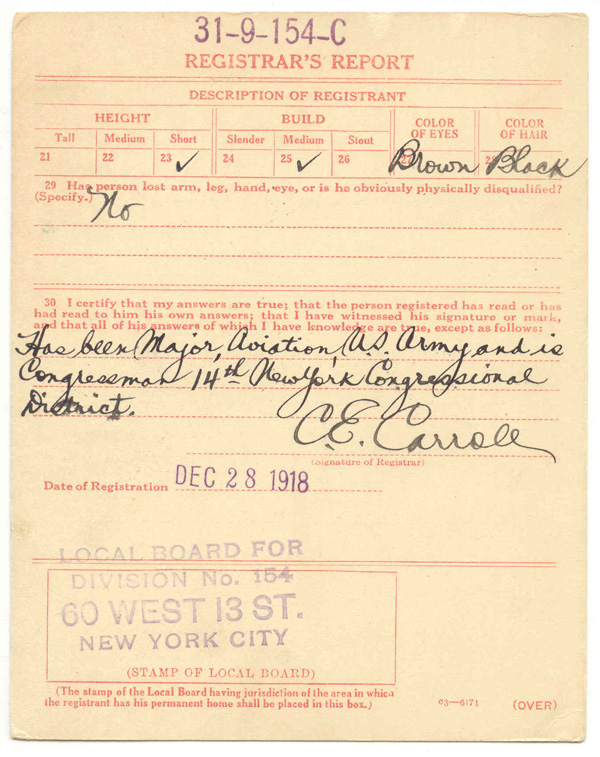 31-9-154-C
REGISTRAR'S REPORT
DESCRIPTION OF REGISTRANT
HEIGHT BUILD COLOR OF EYES COLOR OF HAIR
Tall Medium Short Slender Medium Stout
21 22 23 ✓ 24 25 ✓ 26 27 Brown 28 Black
29 Has person lost arm, leg, hand, eye, or is he obviously physically disqualified?
(Specify.) No
30 I certify that my answers are true; that the person registered has read or has
had read to him his own answers; that I have witnessed his signature or mark,
and that all of his answers of which I have knowledge are true, except as follows:
Has been Major, Aviation, U.S. Army and is
Congressman 14th New York Congressional
District.
C. E. Carroll
(Signature of Registrar)
Date of Registration DEC 28 1918
LOCAL BOARD FOR
DIVISION No. 154
60 WEST 13 ST.
NEW YORK CITY
(STAMP OF LOCAL BOARD)
(The stamp of the Local Board having jurisdiction of the area in which
the registrant has his permanent home shall be placed in this box.)
03—6171 (OVER)